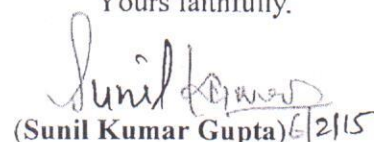 Yours faithfully.
Sunil Kumar
(Sunil Kumar Gupta) 6/2/15